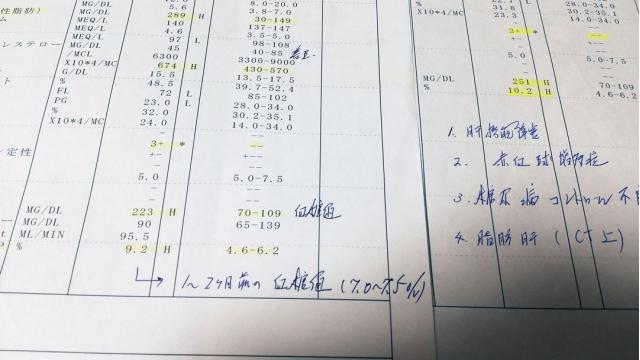 MG/DL 5.6 8.0-20.0
性脂肪) MG/DL 289 H 3.8-7.0
MEQ/L 140 30-149
MEQ/L 4.6 137-147
MEQ/L 97 L 3.5-5.0
レステロー MG/DL 45 98-108
/MCL 6300 40-85
X10*4/MC 674 H 3300-9000
G/DL 15.5 430-570
ト % 48.5 13.5-17.5
FL 72 L 39.7-52.4
PG 23.0 L 85-102
% 32.0 28.0-34.0
X10*4/MC 24.0 30.2-35.1
- 14.0-34.0
3+ * --
/定性 +- --
- --
5.0 5.0-7.5
- --
- --
MG/DL 223 H 70-109 血糖値
ー MG/DL 90 65-139
t ML/MIN 95.5
P % 9.2 H 4.6-6.2
1~2ヶ月前の血糖値 (7.0~7.5%)
% 31.8 28.0-34.0
X10*4/MC 23.3 30.2-35.1
- 14.0-34.0
3+ *
+-
5.0 5.0-7.5
MG/DL 251 H
% 10.2 H 4.6-6.2
1. 肝機能障害
2. 赤血球増多症
3. 糖尿病コントロール不
4. 脂肪肝 (CT上)